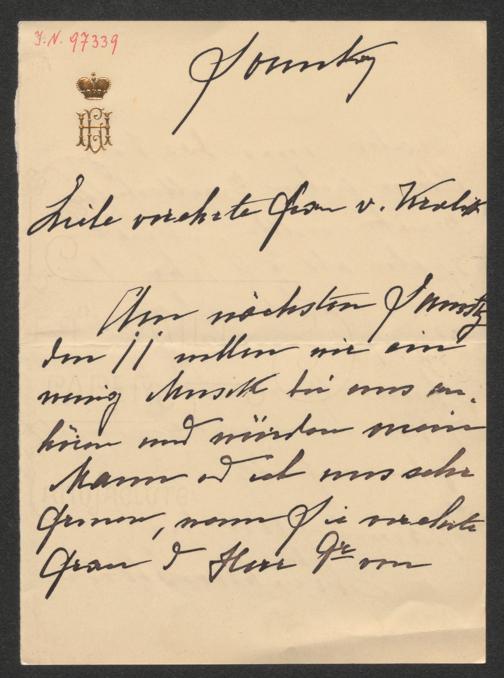 J. N. 97339
Sonntag
Liebe verehrte Frau v. Kralik
Am nächsten Samstg
den 11 wollen wir ein
wenig Musik bei uns an-
hören und würden mein
Mann u ich uns sehr
freuen, wenn Sie verehrte
Frau & Herr Gr von